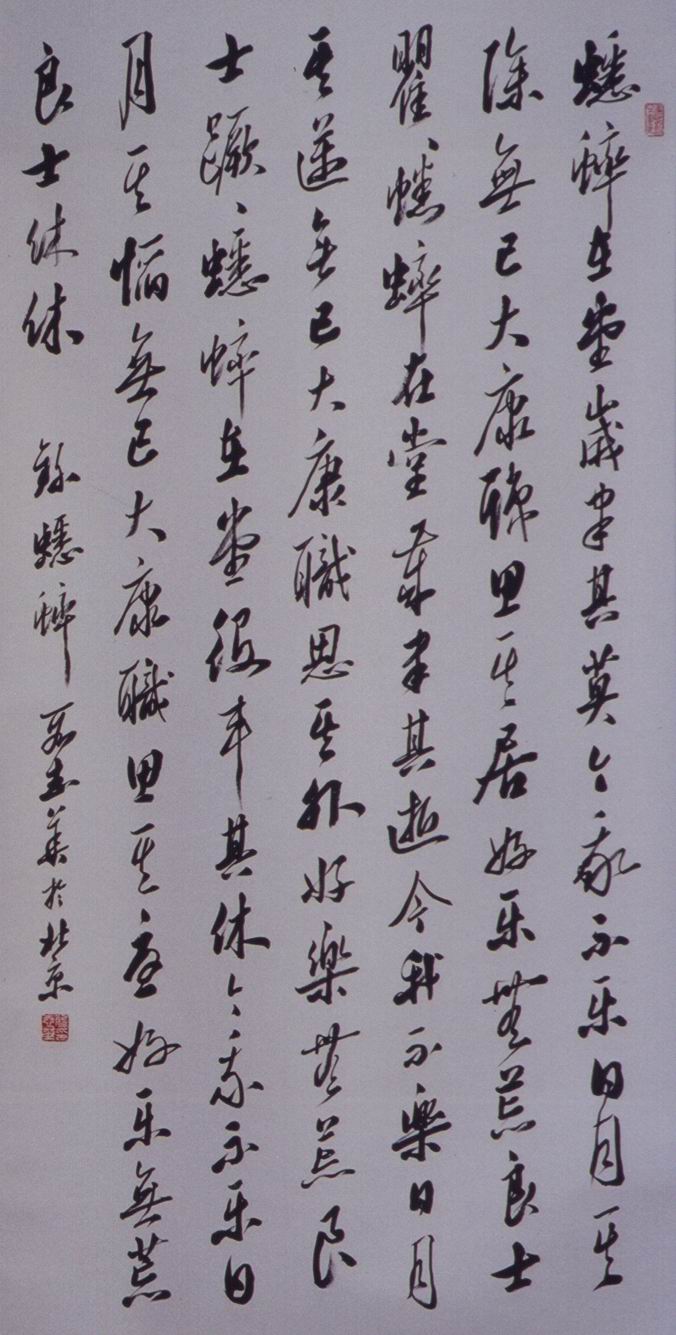 蟋蟀在堂歲聿其莫今我不乐日月其
除無已大康職思其居好乐無荒良士
瞿〻蟋蟀在堂歲聿其逝今我不樂日月
其邁無已大康職思其外好樂無荒良
士蹶〻蟋蟀在堂役車其休今我不乐日
月其慆無已大康職思其憂好乐無荒
良士休休 錄蟋蟀 華於北京